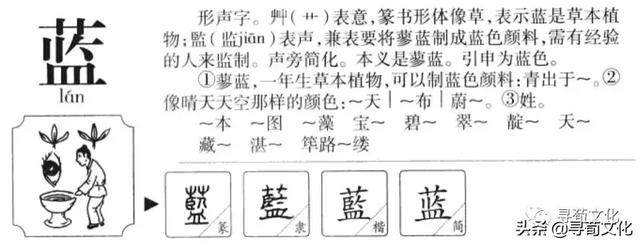 蓝
lán
形声字。艸(艹)表意,篆书形体像草,表示蓝是草本植
物;監(监jiān)表声,兼表要将蓼蓝制成蓝色颜料,需有经验
的人来监制。声旁简化。本义是蓼蓝。引申为蓝色。
①蓼蓝,一年生草本植物,可以制蓝色颜料:青出于～。②
像晴天天空那样的颜色:～天|～布|蔚～。③姓。
～本 ～图 ～藻 宝～ 碧～ 翠～ 靛～ 天～
藏～ 湛～ 筚路～缕
藍 篆 藍 隶 藍 楷 蓝 简
寻荀文化
头条 @寻荀文化